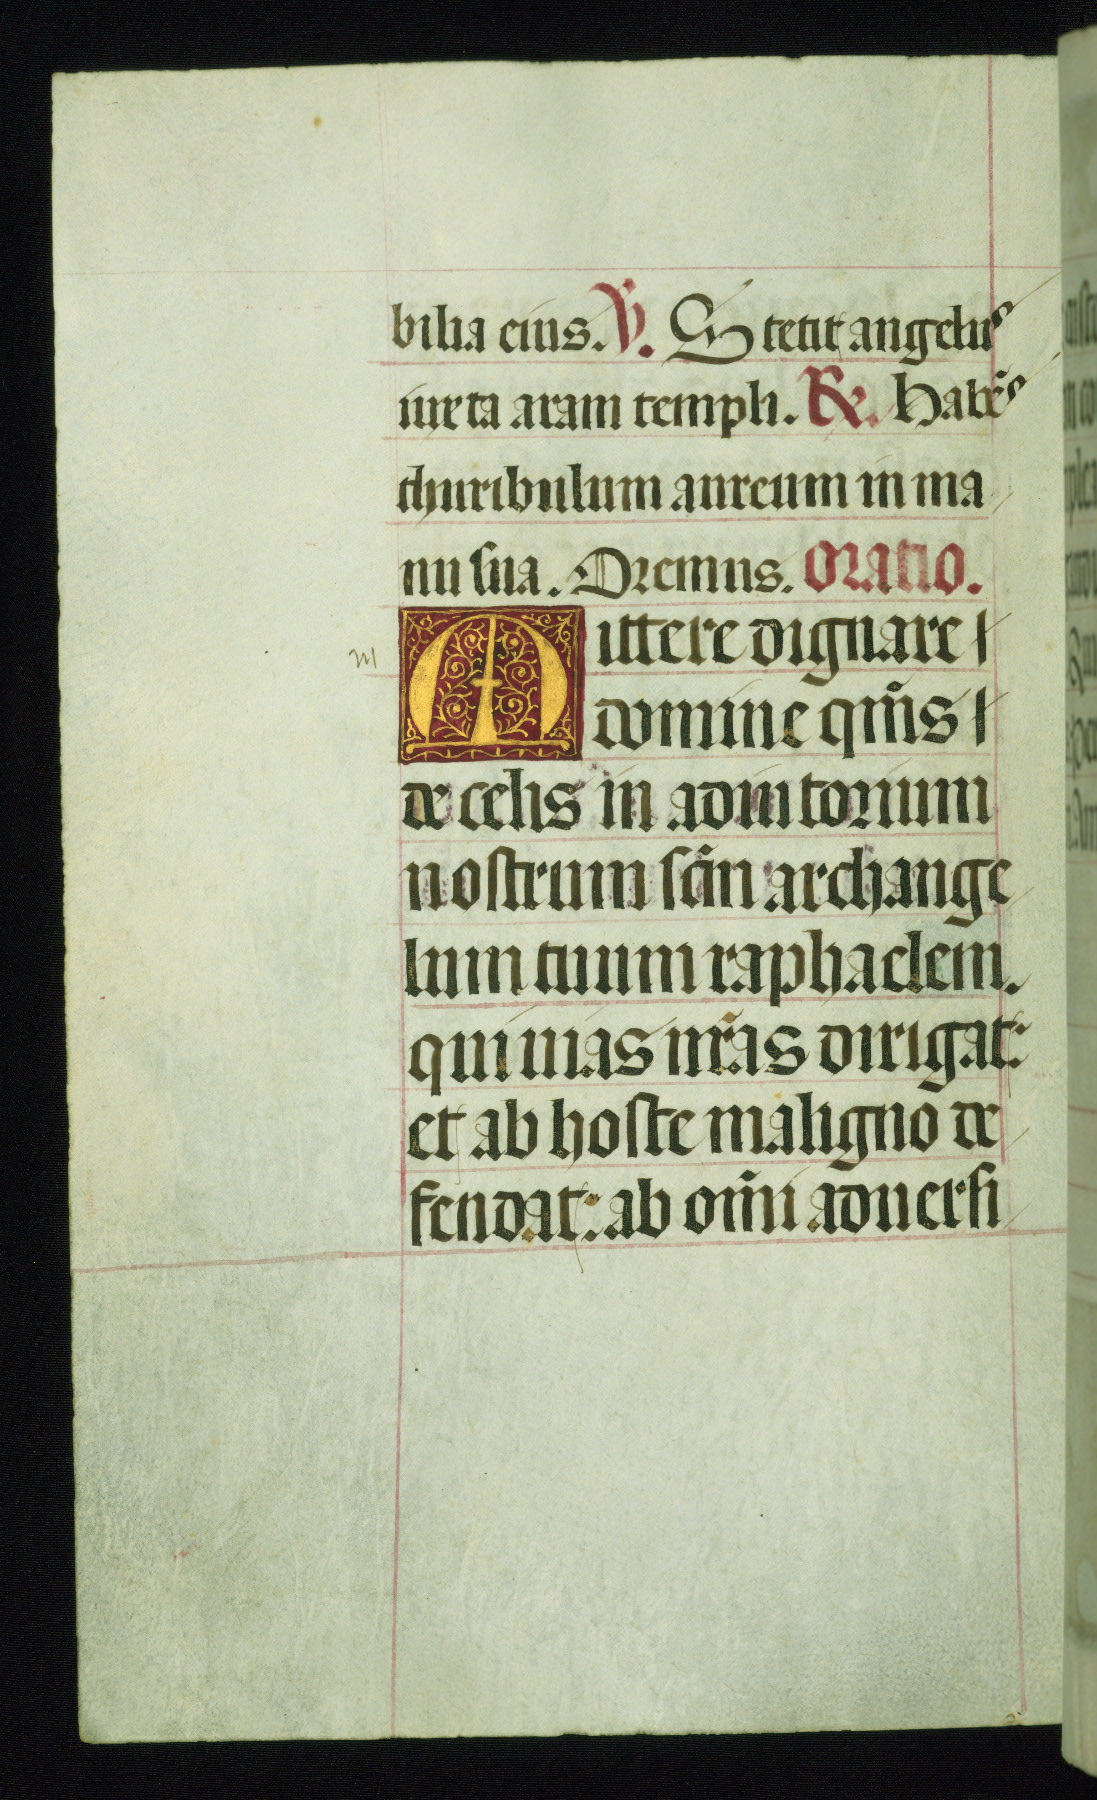 bilia eius. V. Stetit angelus
iuxta aram templi. R. Habēs
thuribulum aureum in ma
nu sua. Oremus. Oratio.
m
Mittere dignare
domine qm̄s
de celis in adiutorium
nostrum scm̄ archange
lum tuum raphaelem.
qui uias nr̄as dirigat:
et ab hoste maligno de
fendat: ab om̄i aduersi